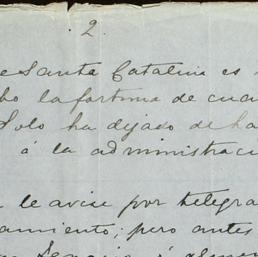 2.
e Santa Catalina es
bo la fortuna de cua
Solo ha dejado de ha
á la administraci
le avise por telegra
amiento; pero antes